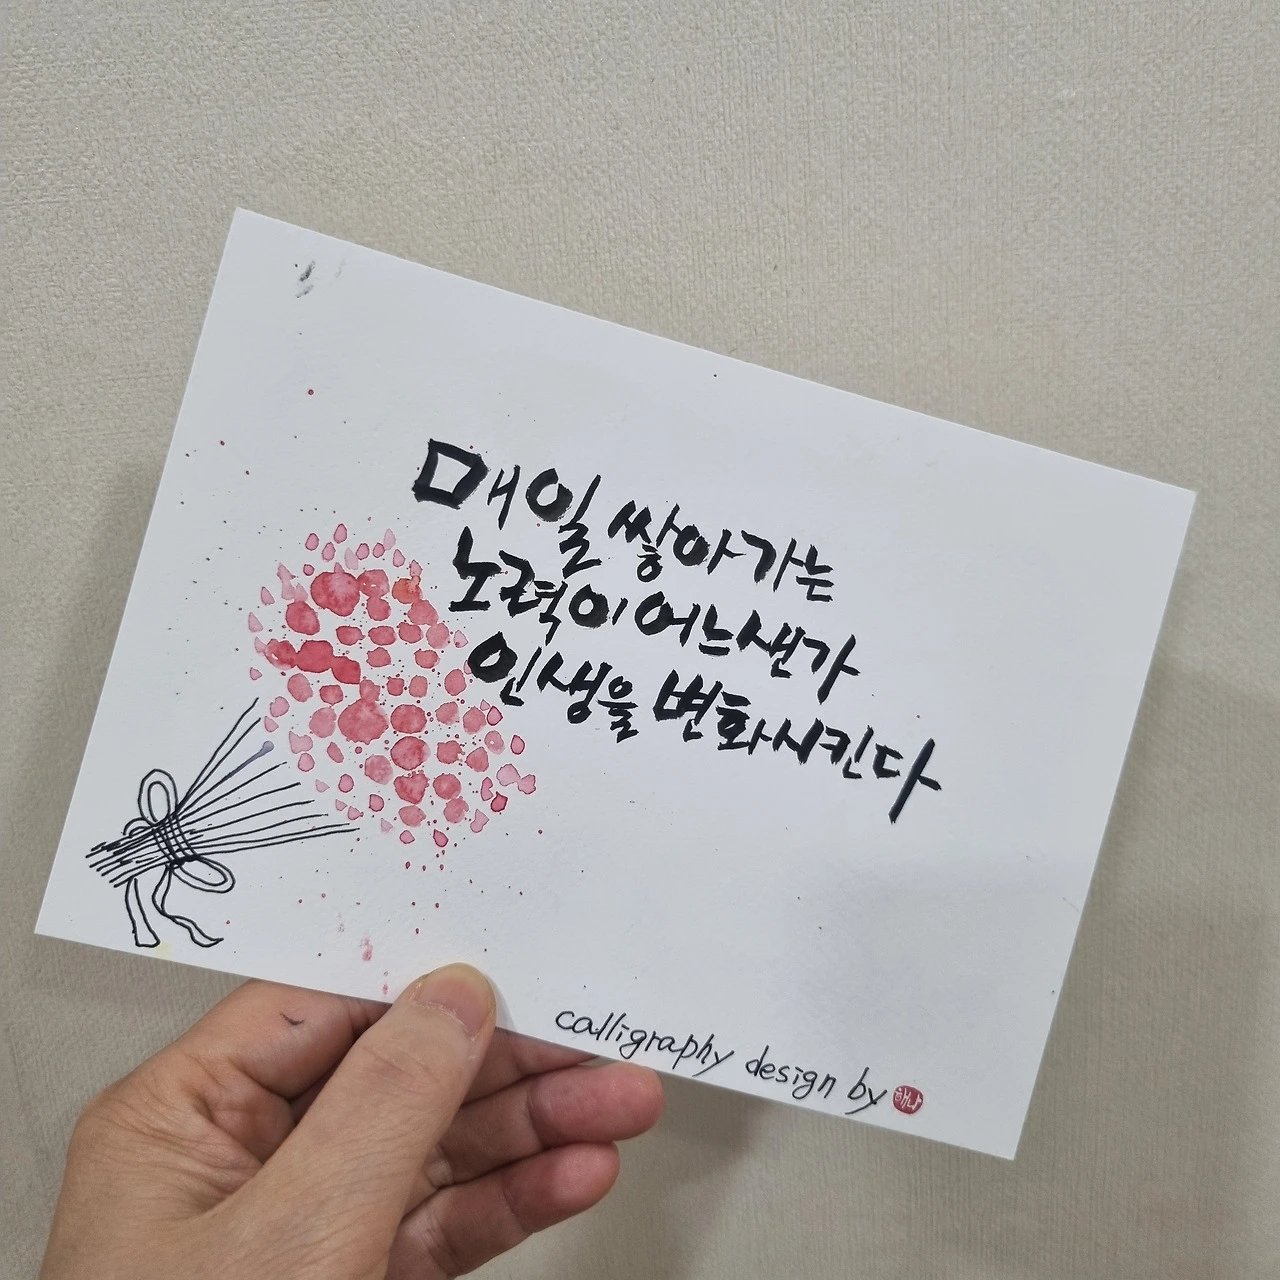 매일 쌓아가는
노력이 어느샌가
인생을 변화시킨다
calligraphy design by 해나